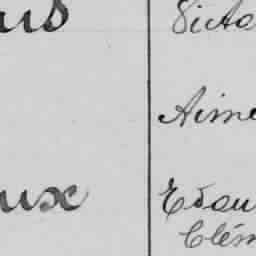 us Victo
Aimé
ux Edou
Clém